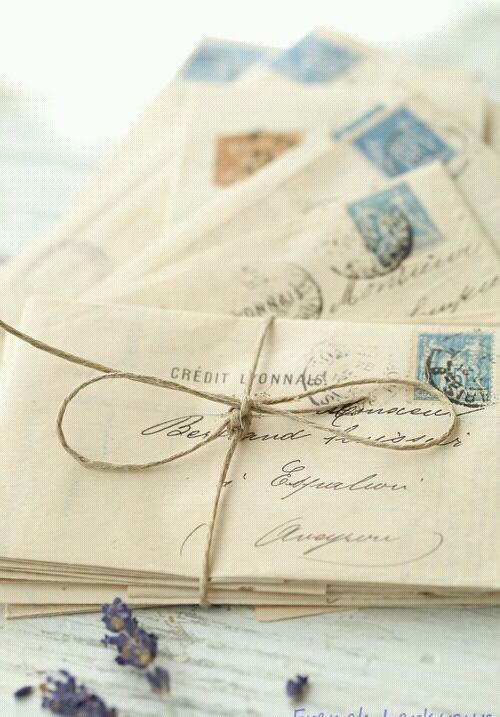 Monsieur
CRÉDIT LYONNAIS
Monsieur
Bertrand huissier
à Espalion
(Aveyron)
French Larkspur